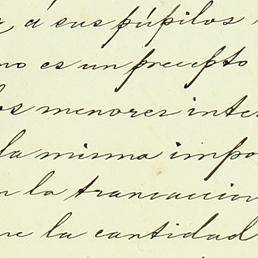 á sus pupilos
es un precepto
los menores inte
la misma impo
la transaccion
la cantidad